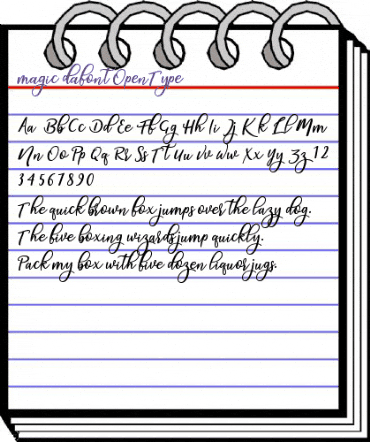 magic dafont OpenType
Aa Bb Cc Dd Ee Ff Gg Hh Ii Jj Kk Ll Mm
Nn Oo Pp Qq Rr Ss Tt Uu Vv Ww Xx Yy Zz 1 2
3 4 5 6 7 8 9 0
The quick brown fox jumps over the lazy dog.
The five boxing wizards jump quickly.
Pack my box with five dozen liquor jugs.